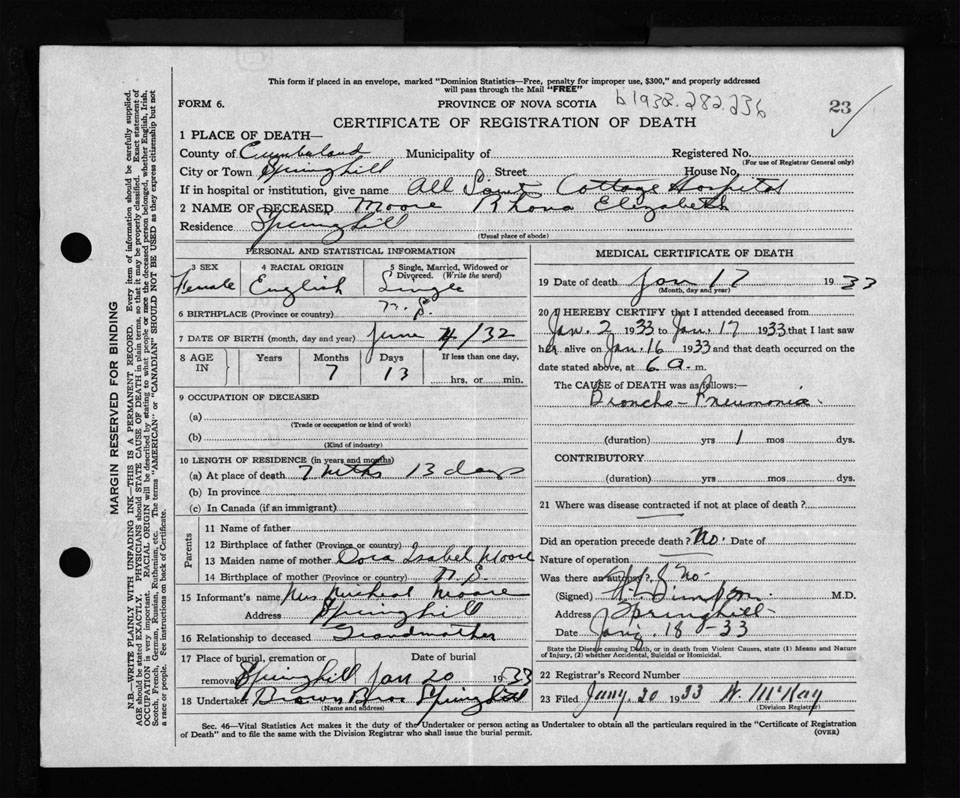 This form if placed in an envelope, marked "Dominion Statistics—Free, penalty for improper use, $300," and properly addressed
will pass through the Mail "FREE"
FORM 6. PROVINCE OF NOVA SCOTIA b1932.282236 23
CERTIFICATE OF REGISTRATION OF DEATH
1 PLACE OF DEATH—
County of Cumberland Municipality of Registered No.
(For use of Registrar General only)
City or Town Springhill Street House No.
If in hospital or institution, give name All Saints Cottage Hospital
2 NAME OF DECEASED Moore Rhona Elizabeth
Residence Springhill
(Usual place of abode)
PERSONAL AND STATISTICAL INFORMATION
3 SEX 4 RACIAL ORIGIN 5 Single, Married, Widowed or Divorced. (Write the word)
Female English Single
6 BIRTHPLACE (Province or country) N.S.
7 DATE OF BIRTH (month, day and year) June 4/32
8 AGE IN Years Months Days If less than one day,
7 13 hrs. or min.
9 OCCUPATION OF DECEASED
(a)
(Trade or occupation or kind of work)
(b)
(Kind of industry)
10 LENGTH OF RESIDENCE (in years and months)
(a) At place of death 7 mths 13 days
(b) In province
(c) In Canada (if an immigrant)
Parents
11 Name of father
12 Birthplace of father (Province or country)
13 Maiden name of mother Dora Isabel Moore
14 Birthplace of mother (Province or country) N.S.
15 Informant's name Mrs Micheal Moore
Address Springhill
16 Relationship to deceased Grandmother
17 Place of burial, cremation or removal Date of burial
Springhill Jan 20 1933
18 Undertaker Brown Bros. Springhill
(Name and address)
MEDICAL CERTIFICATE OF DEATH
19 Date of death Jan 17 1933
(Month, day and year)
20 I HEREBY CERTIFY that I attended deceased from
Jan. 2 1933 to Jan. 17 1933 that I last saw
her alive on Jan. 16 1933 and that death occurred on the
date stated above, at 6 a.m.
The CAUSE of DEATH was as follows:—
Broncho-Pneumonia.
(duration) yrs 1 mos dys.
CONTRIBUTORY
(duration) yrs mos dys.
21 Where was disease contracted if not at place of death?
Did an operation precede death? No. Date of
Nature of operation
Was there an autopsy? No.
(Signed) M.D.
Address Springhill
Date Jany. 18-33
State the Disease causing Death, or in death from Violent Causes, state (1) Means and Nature
of Injury, (2) whether Accidental, Suicidal or Homicidal.
22 Registrar's Record Number
23 Filed Jany 20 1933 W. McKay
(Division Registrar)
Sec. 46—Vital Statistics Act makes it the duty of the Undertaker or person acting as Undertaker to obtain all the particulars required in the "Certificate of Registration
of Death" and to file the same with the Division Registrar who shall issue the burial permit. (OVER)
MARGIN RESERVED FOR BINDING
N.B.—WRITE PLAINLY WITH UNFADING INK—THIS IS A PERMANENT RECORD. Every item of information should be carefully supplied.
AGE should be stated EXACTLY. PHYSICIANS should STATE CAUSE OF DEATH in plain terms, so that it may be properly classified. Exact statement of
OCCUPATION is very important. RACIAL ORIGIN will be described by stating to what people or race the deceased person belonged, whether English, Irish,
Scotch, French, German, Russian, Ruthenian, etc. The terms "AMERICAN" or "CANADIAN" SHOULD NOT BE USED as they express citizenship but not
a race or people. See instructions on back of Certificate.